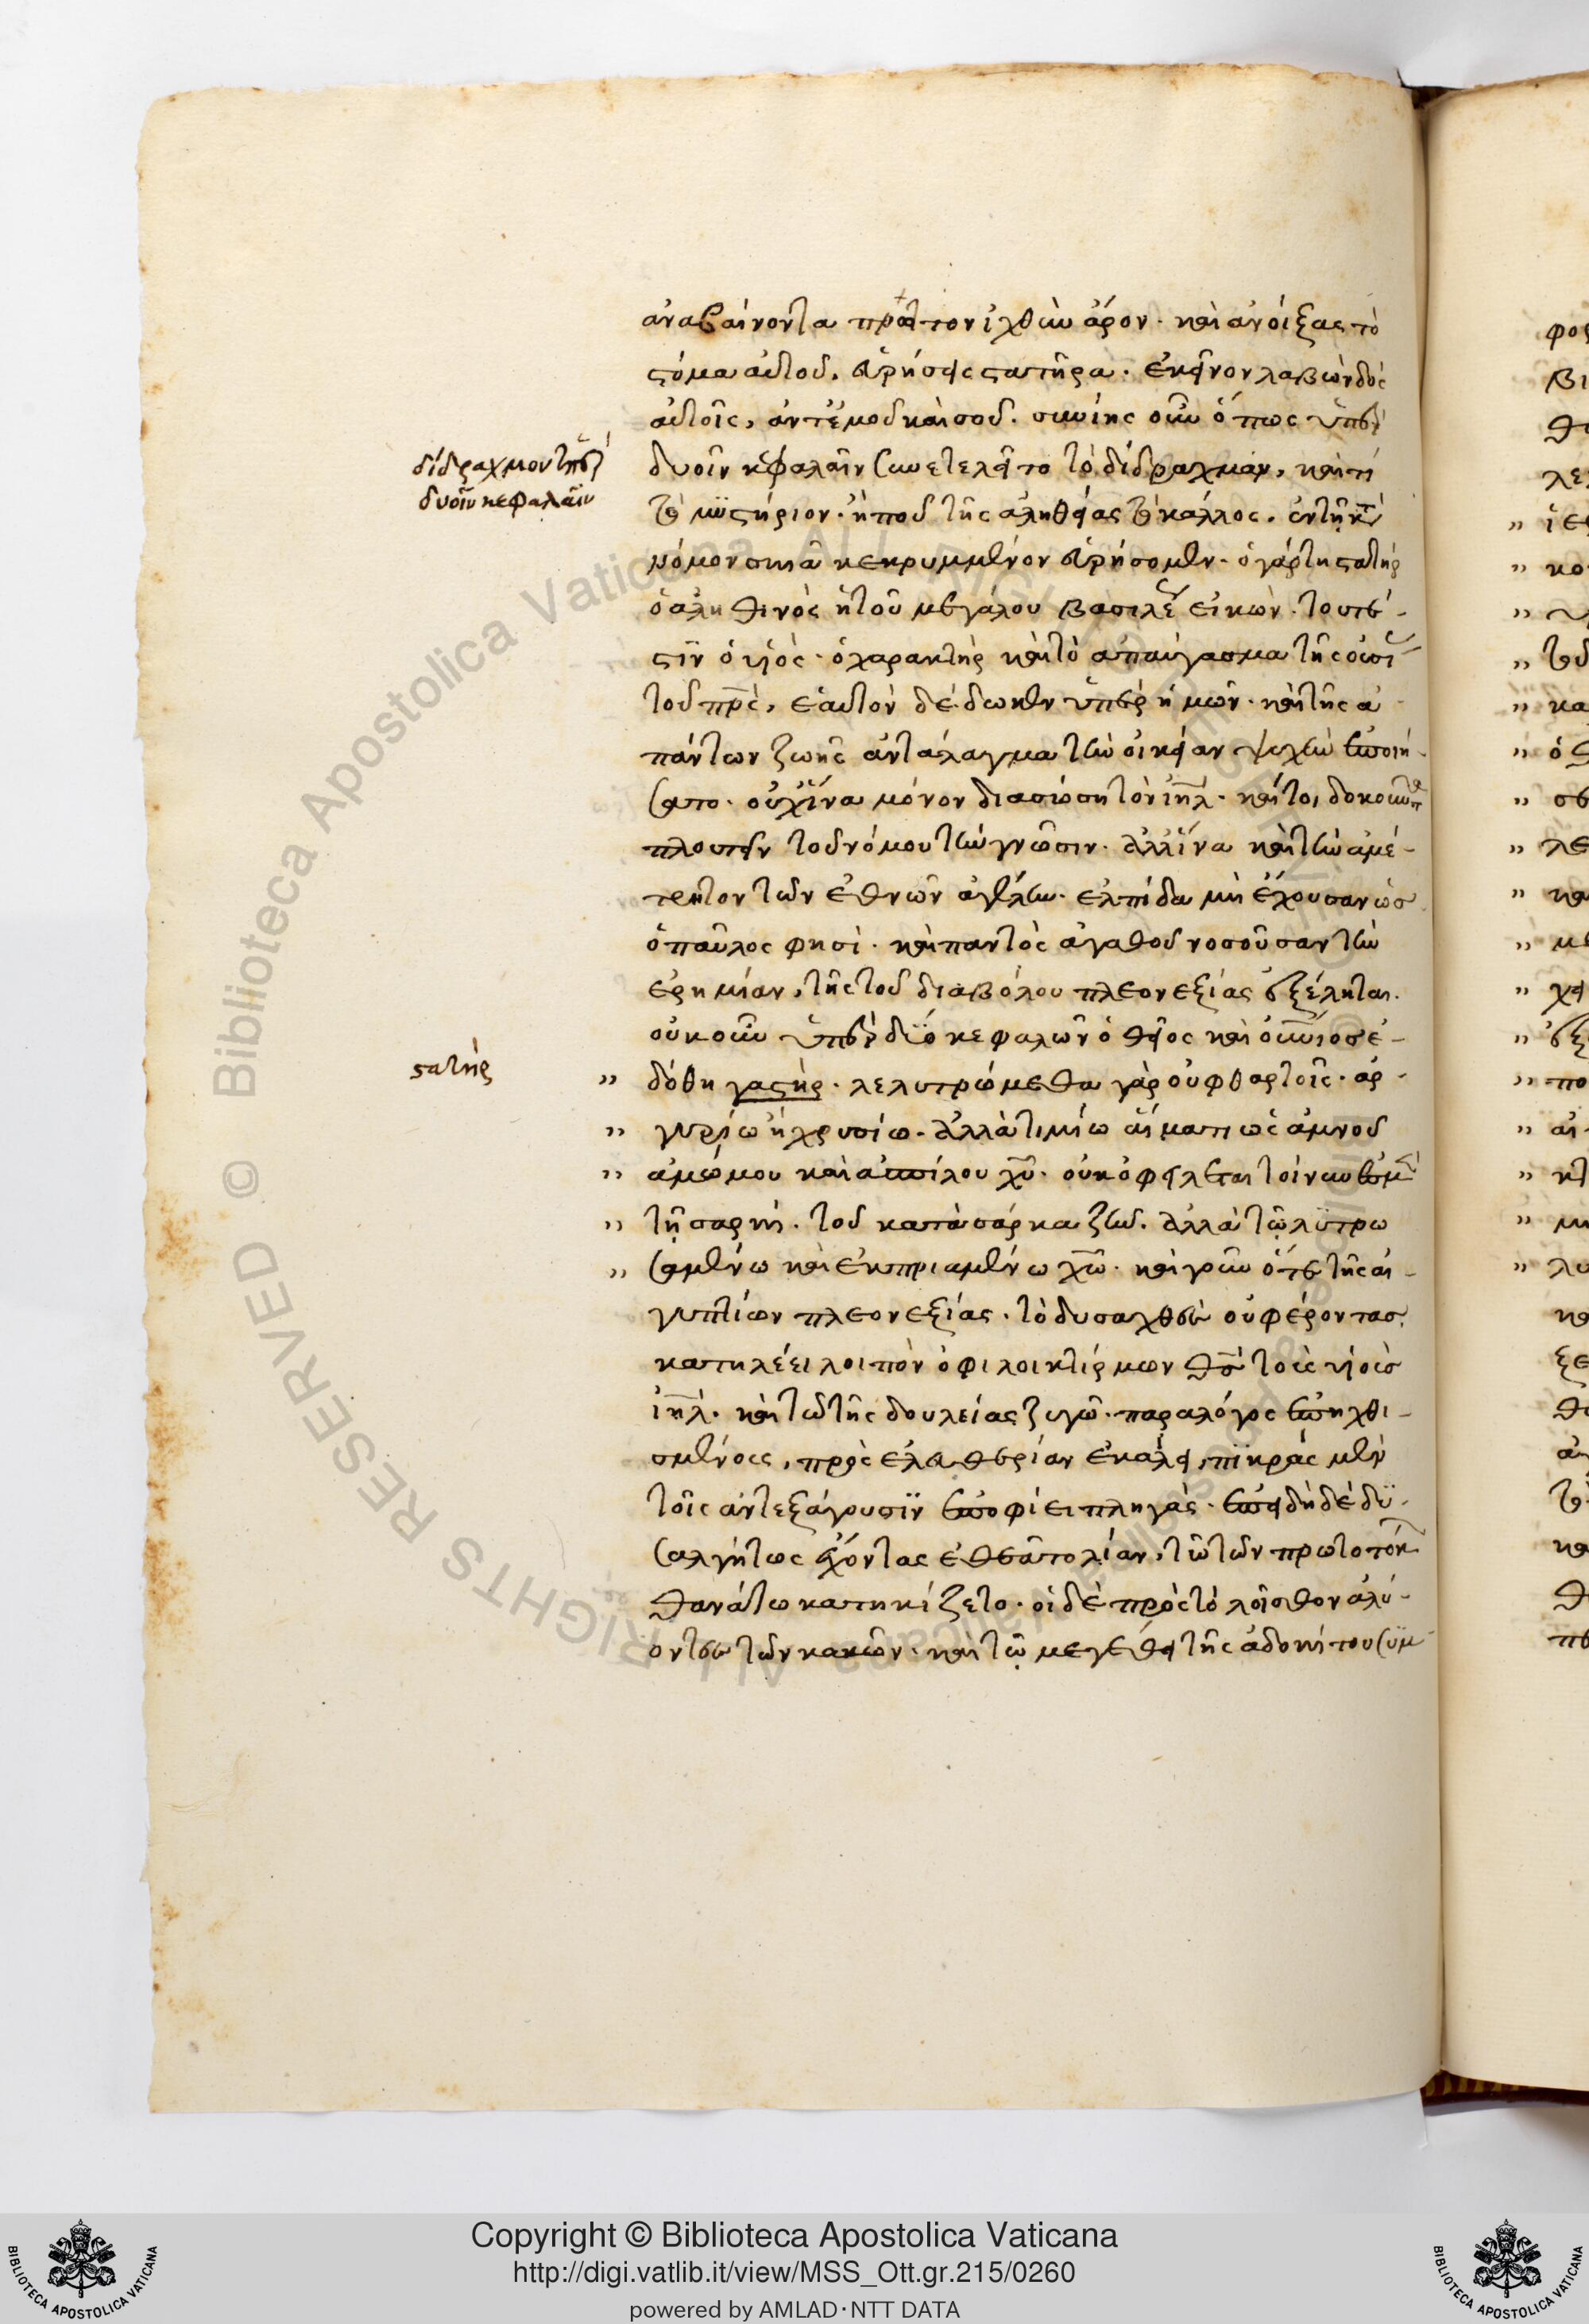 ἀναβαίνοντα πρῶτον ἰχθὺν ἆρον· καὶ ἀνοίξας τὸ
στόμα αὐτοῦ, εὑρήσεις στατῆρα· ἐκεῖνον λαβὼν δὸς
αὐτοῖς, ἀντ' ἐμοῦ καὶ σοῦ. συνίης οὖν ὅπως ὑπὲρ
δυοῖν κεφαλαῖν συνετελεῖτο τὸ δίδραχμον, καὶ τί
τὸ μυστήριον· ἢ ποῦ τῆς ἀληθείας τὸ κάλλος, ἐν τῇ κατὰ
νόμον σκιᾷ κεκρυμμένον εὑρήσομεν· ὁ γάρ τοι στατὴρ
ὁ ἀληθινὸς ἡ τοῦ μεγάλου βασιλέως εἰκών· τουτέ-
στιν ὁ υἱός· ὁ χαρακτὴρ καὶ τὸ ἀπαύγασμα τῆς οὐσίας
τοῦ πρς, ἑαυτὸν δέδωκεν ὑπὲρ ἡμῶν· καὶ τῆς ἁ-
πάντων ζωῆς ἀντάλαγμα τὴν οἰκείαν ψυχὴν ἐποιή-
σατο· οὐχ ἵνα μόνον διασώση τὸν ιηλ· καίτοι δοκοῦντα
πλουτεῖν τοῦ νόμου τὴν γνῶσιν· ἀλλ' ἵνα καὶ τὴν ἀμέ-
τρητον τῶν ἐθνῶν ἀγέλην· ἐλπίδα μὴ ἔχουσαν ὡς
ὁ παῦλος φησὶ· καὶ παντὸς ἀγαθοῦ νοσοῦσαν τὴν
ἐρημίαν, τῆς τοῦ διαβόλου πλεονεξίας ἐξέληται.
οὐκοῦν ὑπὲρ δύο κεφαλῶν ὁ θεῖος καὶ
δόθη γαστὴρ· λελυτρώμεθα γὰρ οὐ φθαρτοῖς· ἀρ-
γυρίω ἢ χρυσίω· ἀλλὰ τιμίω αἵματι ὡς ἀμνοῦ
ἀμώμου καὶ ἀσπίλου χυ· οὐκ ὀφείλεται τοίνυν
τῇ σαρκὶ· τοῦ κατὰ σάρκα ζῆν· ἀλλὰ τῷ λυτρω
σαμένω καὶ ἐκπριαμένω χω· καὶ γοῦν ὅτε τῆς αἰ-
γυπτίων πλεονεξίας· τὸ δυσαχθὲς οὐ φέροντας
κατηλέει λοιπὸν ὁ φιλοικτίρμων θς τοὺς υἱοὺς
ιηλ· καὶ τῶ τῆς δουλείας ζυγῶ· παραλόγως ἐπηχθι-
σμένους, πρὸς ἐλευθερίαν ἐκάλει, πικρὰς μὲν
τοῖς αἰγυπτίοις
σαλγήτως ἔχοντας ἐθεᾶτο λίαν, τῶ τῶν πρωτοτόκων
θανάτω κατηκίζετο· οἱ δὲ πρὸς τὸ λοῖσθον ἀλύ-
οντες τῶν κακῶν· καὶ τῷ μεγέθει τῆς ἀδοκήτου συμ-
δίδραχμον τὸ ὑπὲρ
δυοῖν κεφαλαῖν
στατήρ
Copyright © Biblioteca Apostolica Vaticana
http://digi.vatlib.it/view/MSS_Ott.gr.215/0260
powered by AMLAD·NTT DATA
BIBLIOTECA APOSTOLICA VATICANA
BIBLIOTECA APOSTOLICA VATICANA